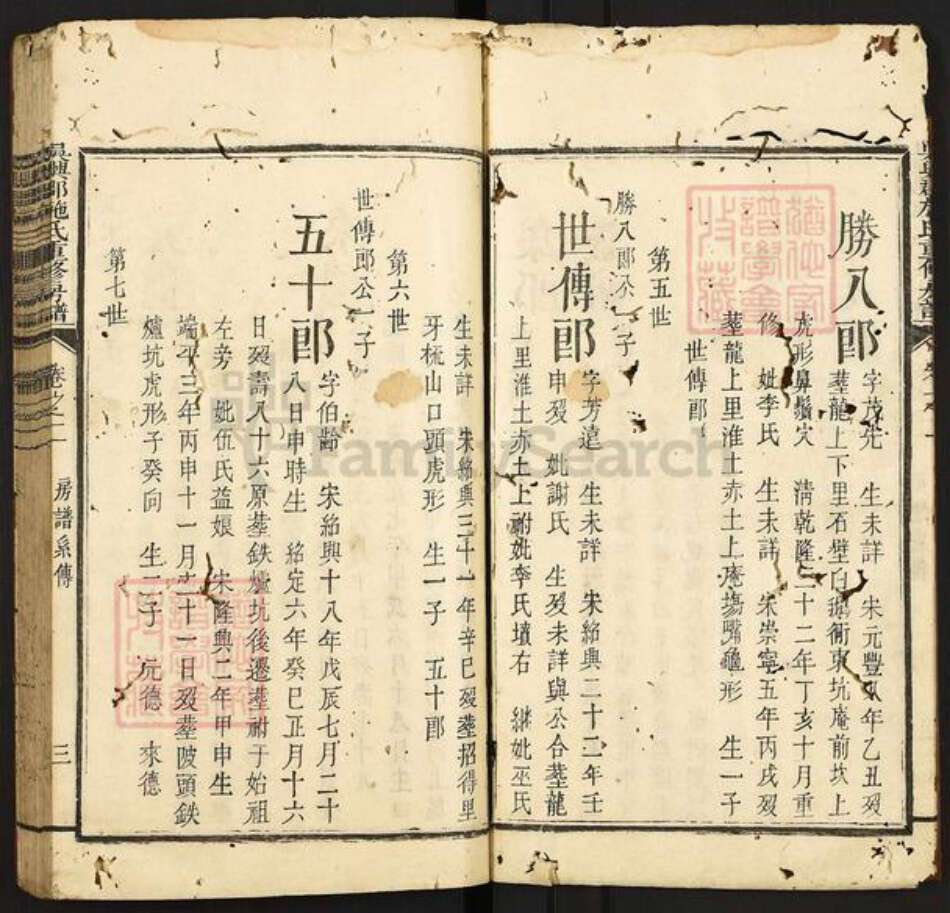 勝八郎
字茂先 生未詳 宋元豐八年乙丑歿
塟龍上下里石壁白鵝衝東坑庵前坎上
虎形鼻鬚穴 清乾隆三十二年丁亥十月重
修 妣李氏 生未詳 宋崇寧五年丙戌歿
塟龍上里淮土赤土上庵塲嘴龜形 生一子
世傳郎
第五世
勝八郎公一子
世傳郎
字芳遠 生未詳 宋紹興二十二年壬
申歿 妣謝氏 生歿未詳與公合塟龍
上里淮土赤土上祔妣李氏墳右 継妣巫氏
生未詳 宋紹興三十一年辛巳歿塟招得里
牙梳山口頭虎形 生一子 五十郎
第六世
世傳郎公一子
五十郎
字伯齡 宋紹興十八年戊辰七月二十
八日申時生 紹定六年癸巳正月十六
日歿壽八十六原塟鉄爐坑後遷塟祔于始祖
左旁 妣伍氏益娘 宋隆興二年甲申生
端平三年丙申十一月二十一日歿塟陂頭鉄
爐坑虎形子癸向 生二子 元德 來德
第七世
吳興郡施氏重修房譜 卷之二 房譜系傳 三
FamilySearch